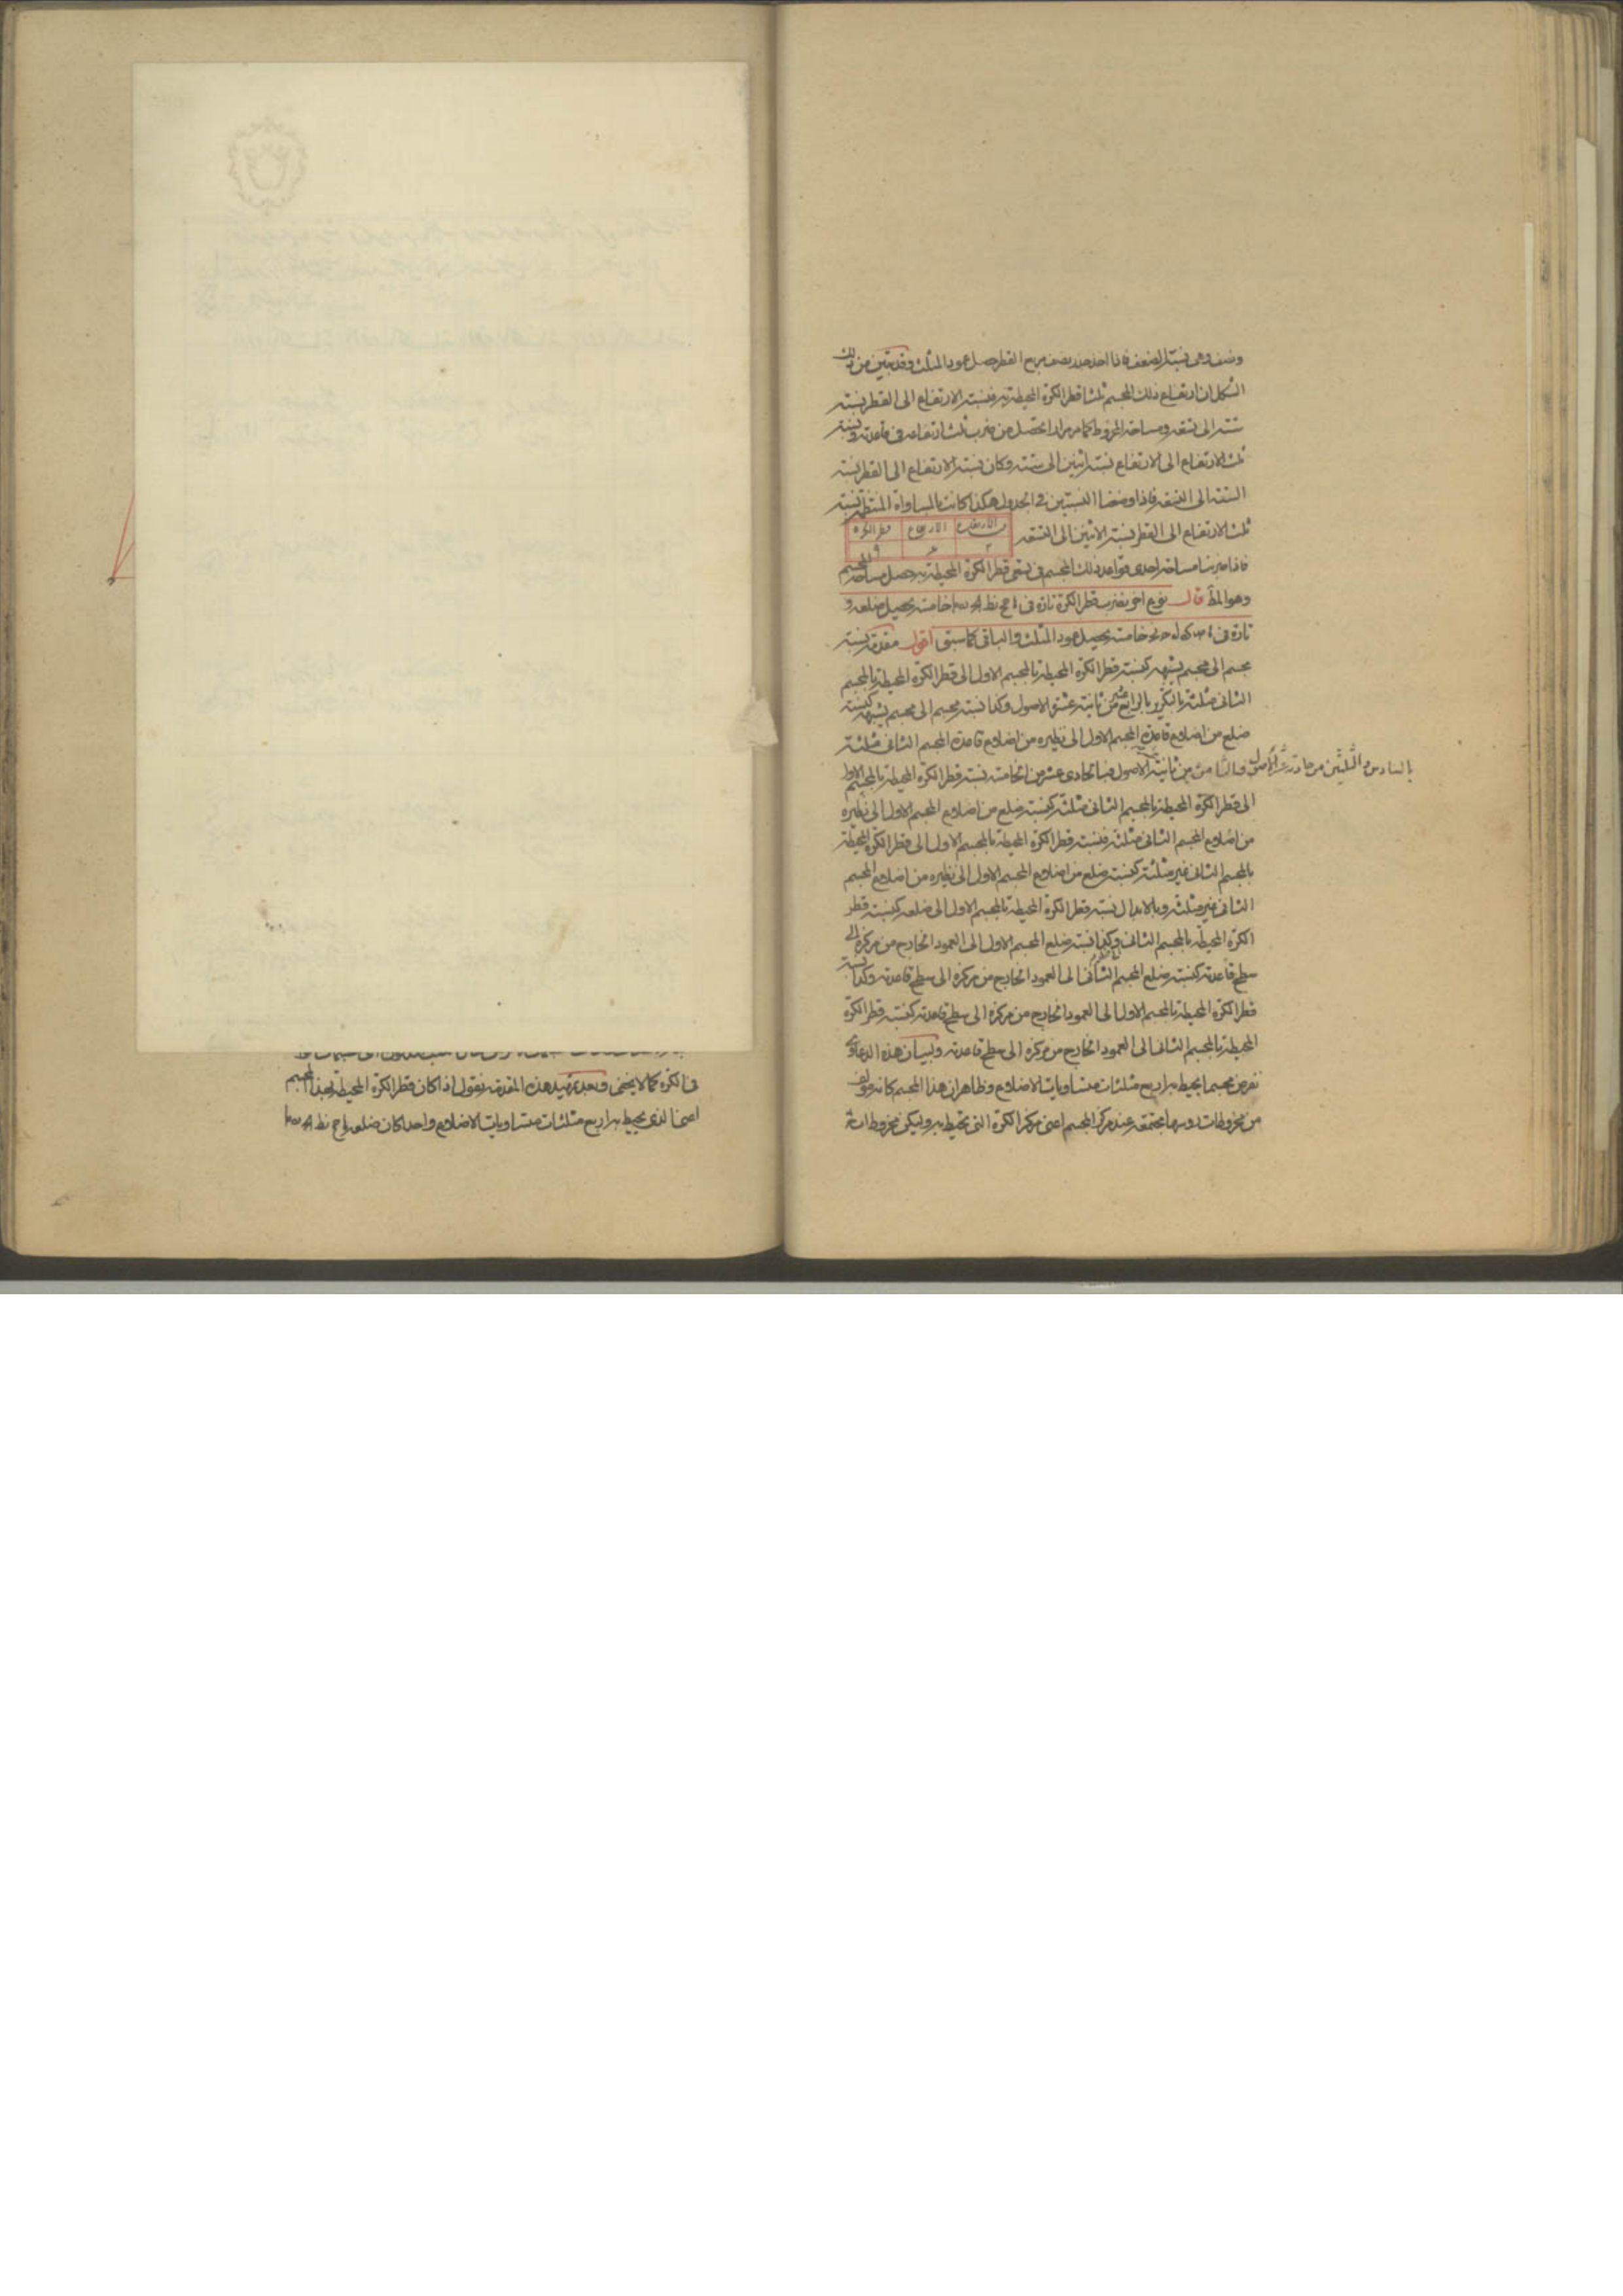 ونصف وهى نسبة الضعف فاذا اخذ جذر نصف مربع القطر حصل عمود المثلث وقد تبين من ذلك
الشكل ان ارتفاع ذلك المجسم ثلثا قطر الكرة المحيطة به فنسبة الارتفاع الى القطر نسبة
ستة الى تسعة ومساحة المخروط كما مر مرارا تحصل من ضرب ثلث ارتفاعه فى قاعدته ونسبة
ثلث الارتفاع الى الارتفاع نسبة اثنين الى ستة وكان نسبة الارتفاع الى القطر نسبة
الستة الى التسعة فاذا وضعنا النسبتين فى الجدول هكذا كانت بالمساواة المنتظمة نسبة
ثلث الارتفاع الى القطر نسبة الاثنين الى التسعة
ث الارتفاع الارتفاع قطر الكرة
٢ ٦ ٩
فاذا ضربنا مساحة احدى قواعد ذلك المجسم فى تسعى قطر الكرة المحيطة به حصل مساحة المجسم
وهو المط قال نوع اخر نضرب قطر الكرة تارة فى خامسة يحصل ضلعه و
تارة فى خامسة يحصل عمود المثلث والباقى كما سبق اقول مقدمة نسبة
مجسم الى مجسم يشبهه كنسبة قطر الكرة المحيطة بالمجسم الاول الى قطر الكرة المحيطة بالمجسم
الثانى مثلثة بالتكرير بالرابع عشر من ثانية عشر الاصول وكذا نسبة مجسم الى مجسم يشبهه كنسبة
ضلع من اضلاع قاعدة المجسم الاول الى نظيره من اضلاع قاعدة المجسم الثانى مثلثة
بالسادس والثلثين من حادية عشر الاصول وبالثامن من ثانية الاصول فبالحادى عشر من الخامسة نسبة قطر الكرة المحيطة بالمجسم الاول
الى قطر الكرة المحيطة بالمجسم الثانى مثلثة كنسبة ضلع من اضلاع المجسم الاول الى نظيره
من اضلاع المجسم الثانى مثلثة فنسبة قطر الكرة المحيطة بالمجسم الاول الى قطر الكرة المحيطة
بالمجسم الثانى غير مثلثة كنسبة ضلع من اضلاع المجسم الاول الى نظيره من اضلاع المجسم
الثانى غير مثلثة وبالابدال نسبة قطر الكرة المحيطة بالمجسم الاول الى ضلعه كنسبة قطر
الكرة المحيطة بالمجسم الثانى وكذا نسبة ضلع المجسم الاول الى العمود الخارج من مركزه الى
سطح قاعدته كنسبة ضلع المجسم الثانى الى العمود الخارج من مركزه الى سطح قاعدته وكذا نسبة
قطر الكرة المحيطة بالمجسم الاول الى العمود الخارج من مركزه الى سطح قاعدته كنسبة قطر الكرة
المحيطة بالمجسم الثانى الى العمود الخارج من مركزه الى سطح قاعدته وبيان هذه الدعاوى
نفرض مجسما يحيط به اربع مثلثات متساويات الاضلاع وظاهر ان هذا المجسم كانه مؤلف
من مخروطات رؤسها مجتمعة عند مركز المجسم اعنى مركز الكرة التى تحيط به وليكن مخروط
فى الكرة كما لا يخفى وبعد تمهيد هذه المقدمة نقول اذا كان قطر الكرة المحيطة بهذا المجسم
اعنى الذى يحيط به اربع مثلثات متساويات الاضلاع واحدا كان ضلعه